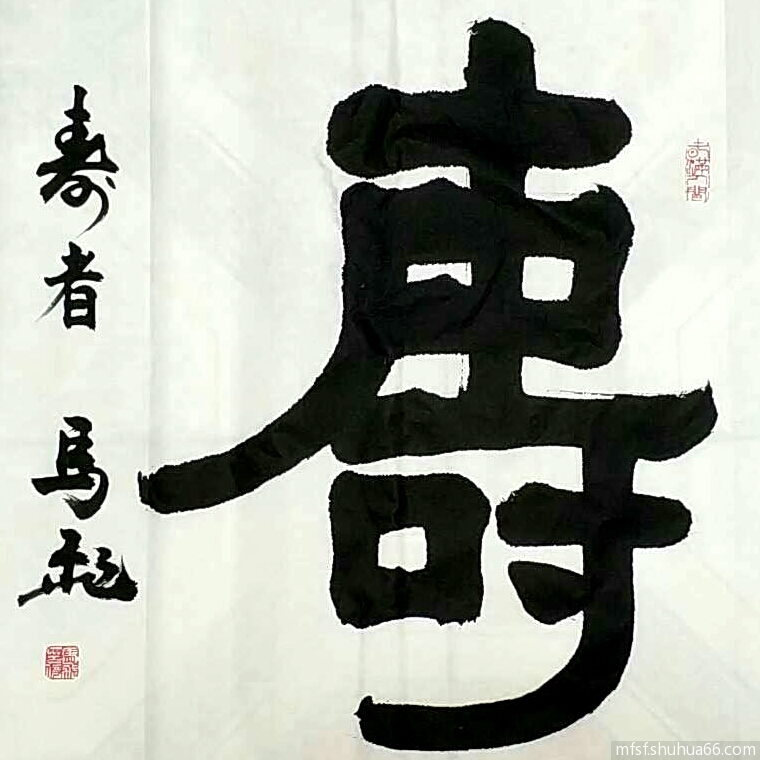 壽
寿者 馬飛
mfsf.shuhua66.com